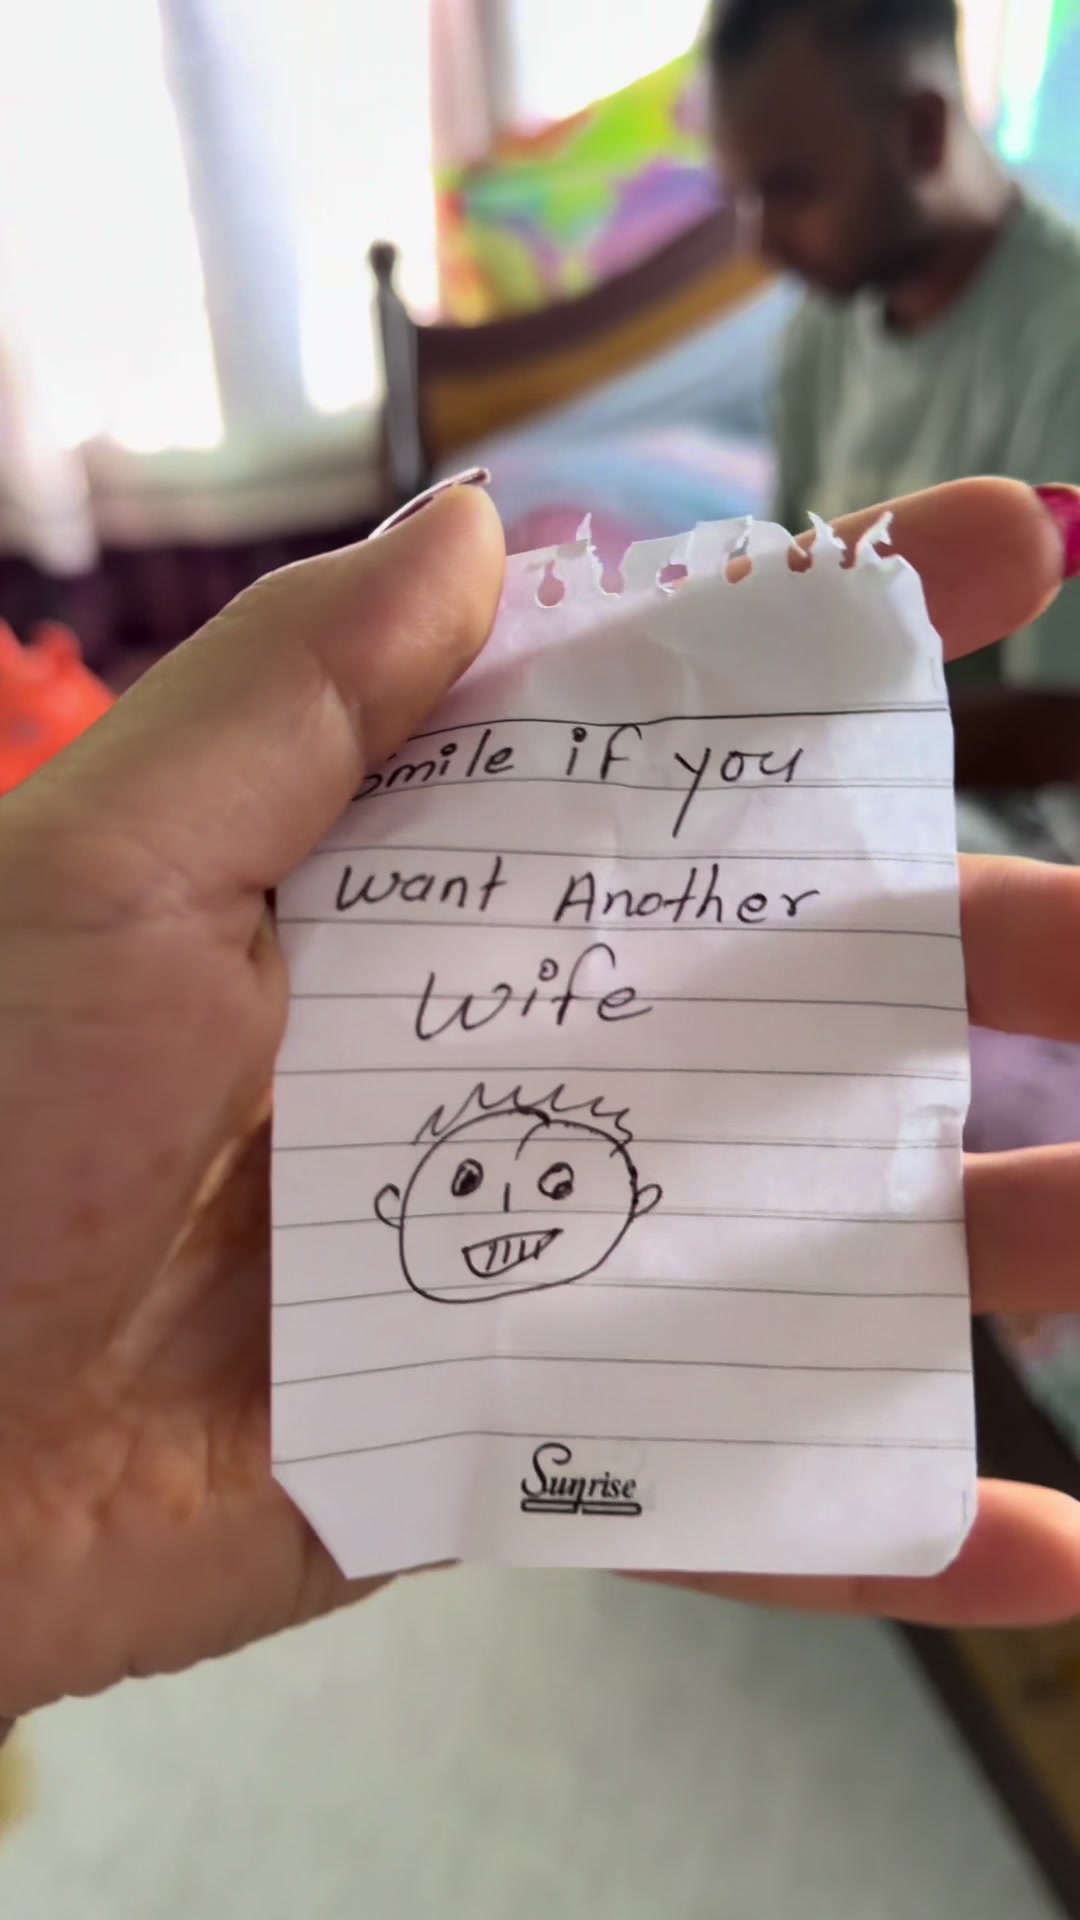 Smile if you
want Another
wife
Sunrise